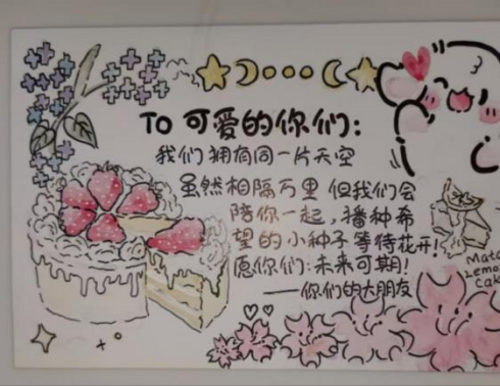 TO 可爱的你们:
我们拥有同一片天空
虽然相隔万里 但我们会
陪你一起,播种希
望的小种子等待花开!
愿你们:未来可期!
——你们的大朋友